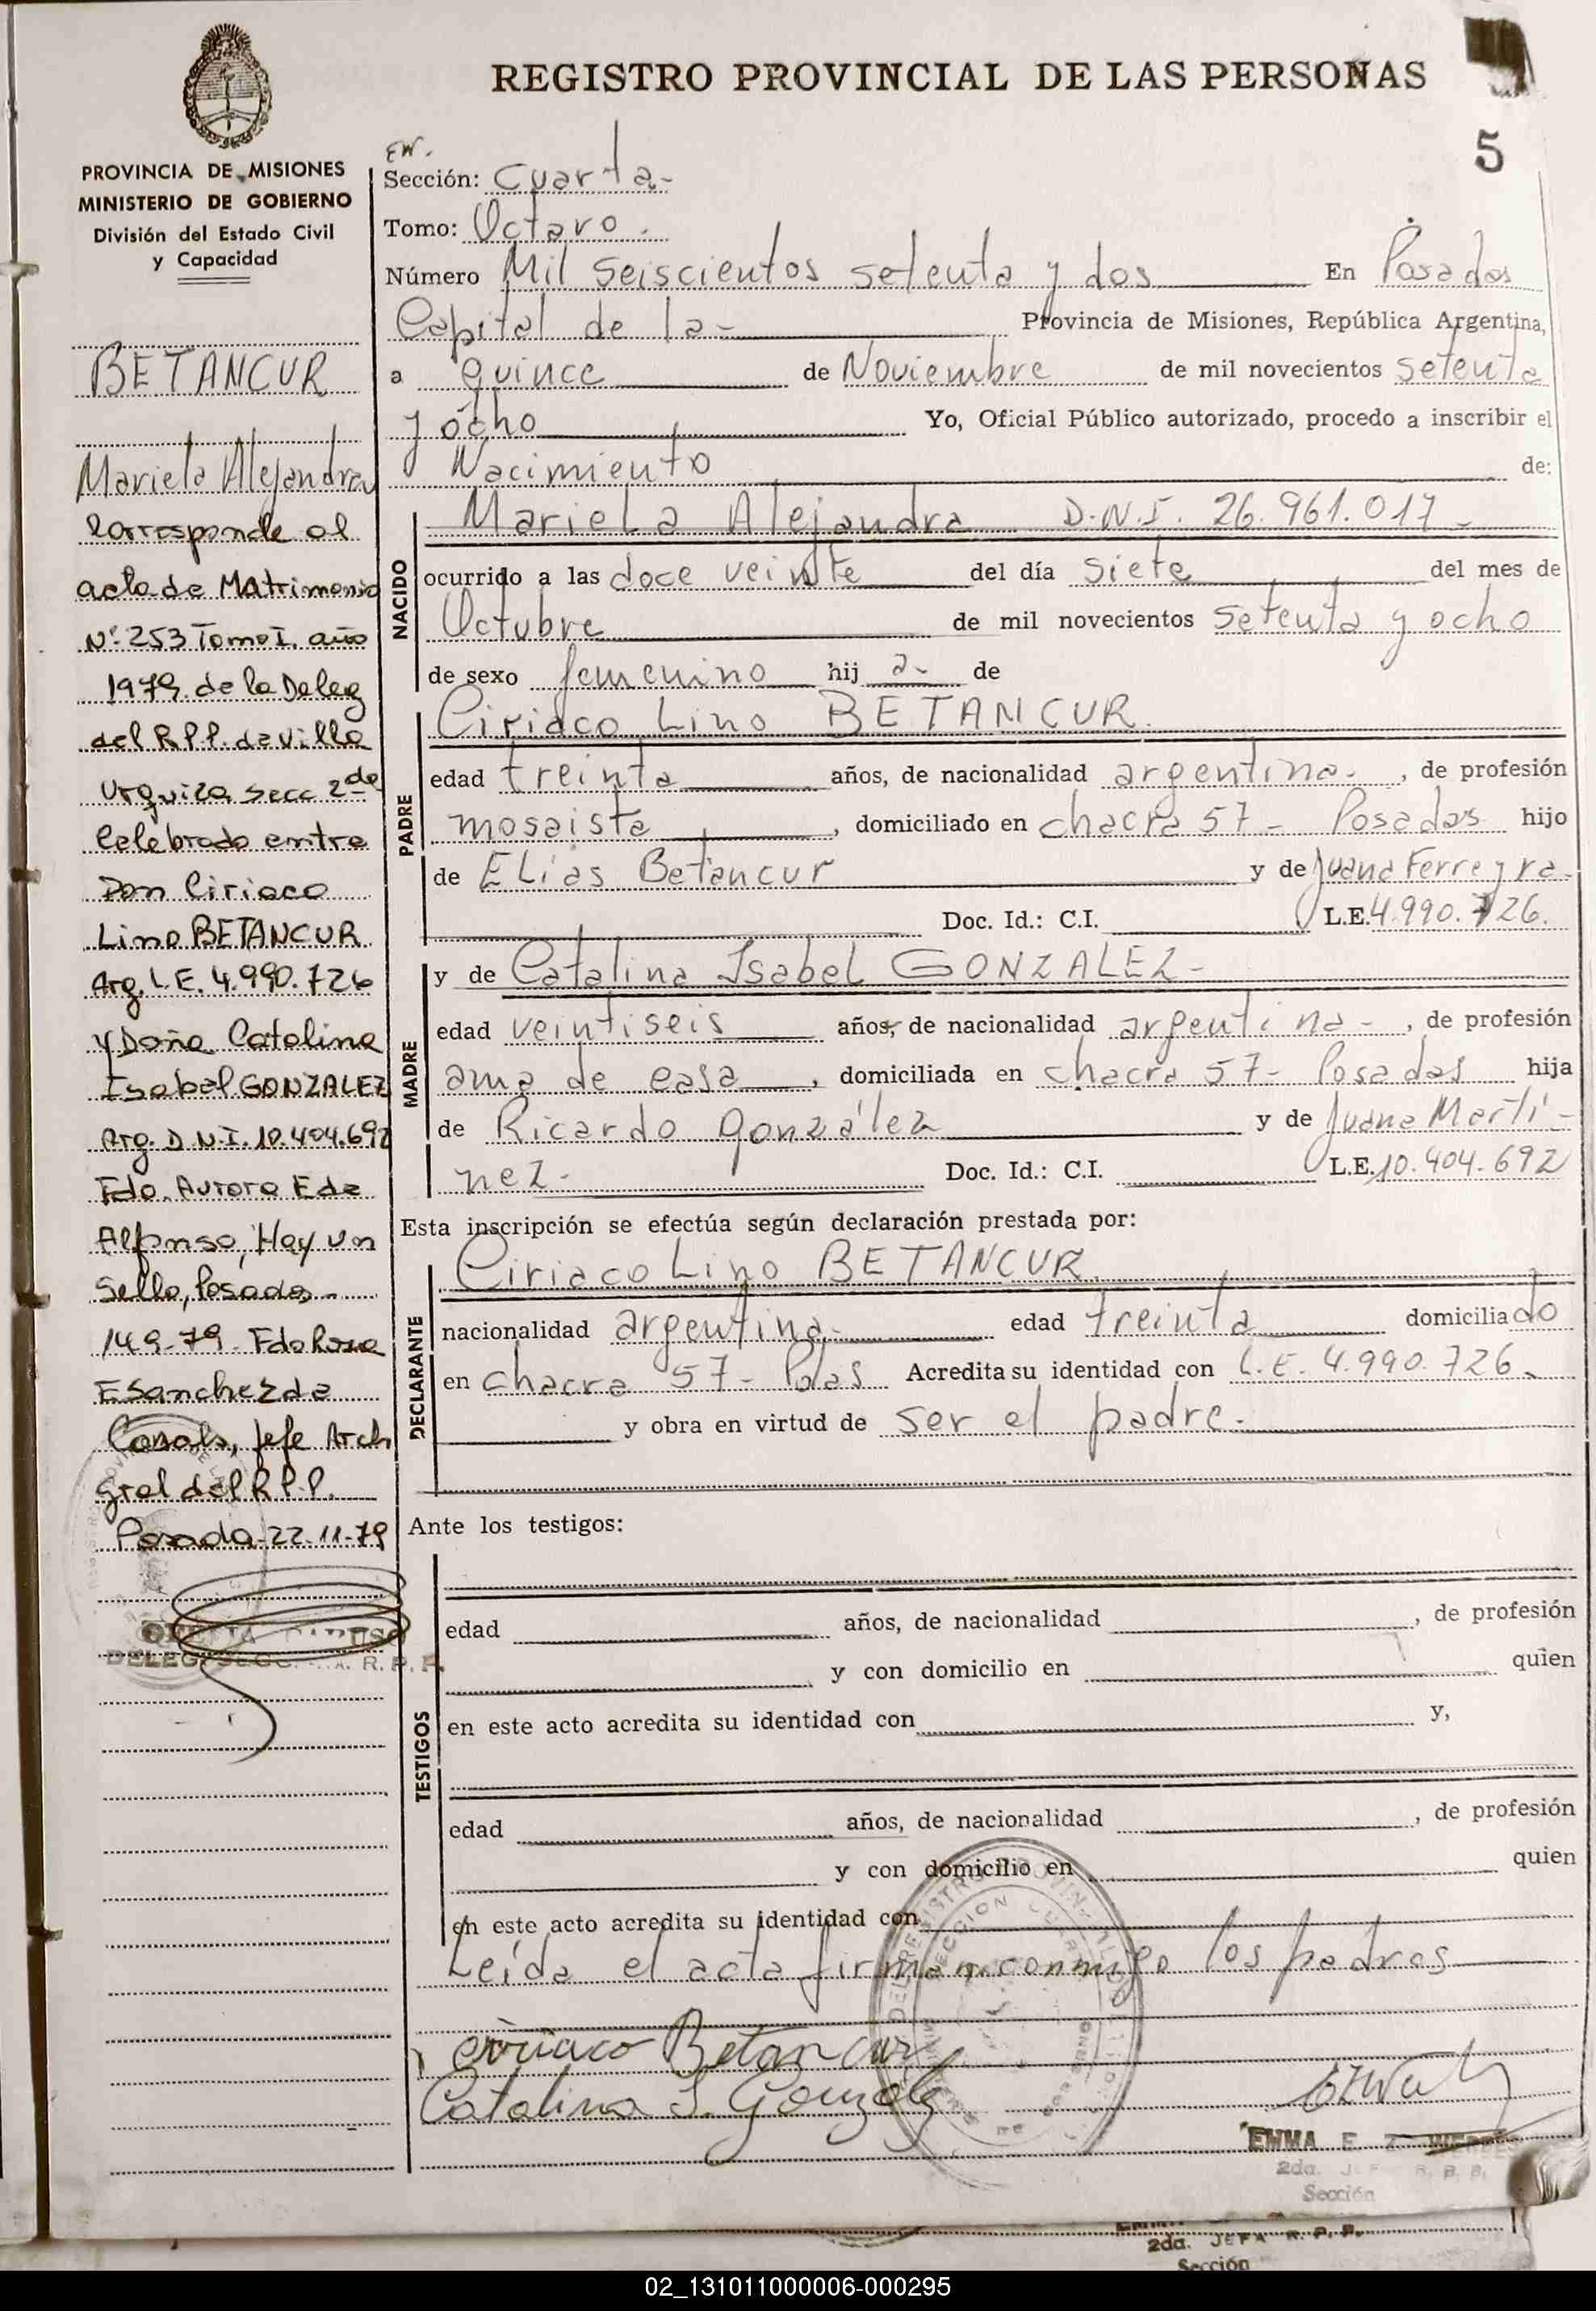 REGISTRO PROVINCIAL DE LAS PERSONAS
5
PROVINCIA DE MISIONES
MINISTERIO DE GOBIERNO
División del Estado Civil
y Capacidad
BETANCUR
Mariela Alejandra
Corresponde al
acta de Matrimonio
Nº 253 Tomo I. año
1979. de la Deleg
del R.P.P. de Villa
Urquiza, secc 2da
Celebrado entre
Don Ciriaco
Lino BETANCUR
Arg. L.E. 4.990.726
Y Doña Catalina
Isabel GONZALEZ
Arg. D.N.I. 10.404.692
Fdo. Aurora Eda
Alfonso, Hay un
Sello, Posadas,-
14-9-79. Fdo Rosa
E Sanchez de
Casals, Jefe Arch
Gral del R.P.P.
Posadas-22-11-79
Sección: Cuarta-
Tomo: Octavo.
Número Mil seiscientos setenta y dos En Posadas
Capital de la- Provincia de Misiones, República Argentina,
a quince de Noviembre de mil novecientos setenta
y ocho Yo, Oficial Público autorizado, procedo a inscribir el
Nacimiento de:
NACIDO
Mariela Alejandra D.N.I. 26.961.017-
ocurrido a las doce veinte del día siete del mes de
Octubre de mil novecientos setenta y ocho
de sexo femenino hij a- de
PADRE
Ciriaco Lino BETANCUR.
edad treinta años, de nacionalidad argentina-, de profesión
mosaista, domiciliado en chacra 57- Posadas hijo
de Elías Betancur y de Juana Ferreyra-
Doc. Id.: C.I. L.E. 4.990.726.
MADRE
y de Catalina Isabel GONZALEZ-
edad veintiseis años, de nacionalidad argentina-, de profesión
ama de casa, domiciliada en chacra 57- Posadas hija
de Ricardo González y de Juana Martí-
nez- Doc. Id.: C.I. L.E. 10.404.692
Esta inscripción se efectúa según declaración prestada por:
DECLARANTE
Ciriaco Lino BETANCUR
nacionalidad argentina- edad treinta domiciliado
en chacra 57- Pdas Acredita su identidad con L.E. 4.990.726-
y obra en virtud de ser el padre-
Ante los testigos:
TESTIGOS
edad años, de nacionalidad , de profesión
y con domicilio en quien
en este acto acredita su identidad con y,
edad años, de nacionalidad , de profesión
y con domicilio en quien
en este acto acredita su identidad con
Leída el acta firman conmigo los padres
Ciriaco Betancur
Catalina I. González
EMMA E.
2da. JEFA R. P. P.
Sección
2da. JEFA R. P. P.
Sección
02_131011000006-000295